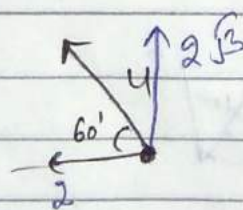 2√3
4
60'
2